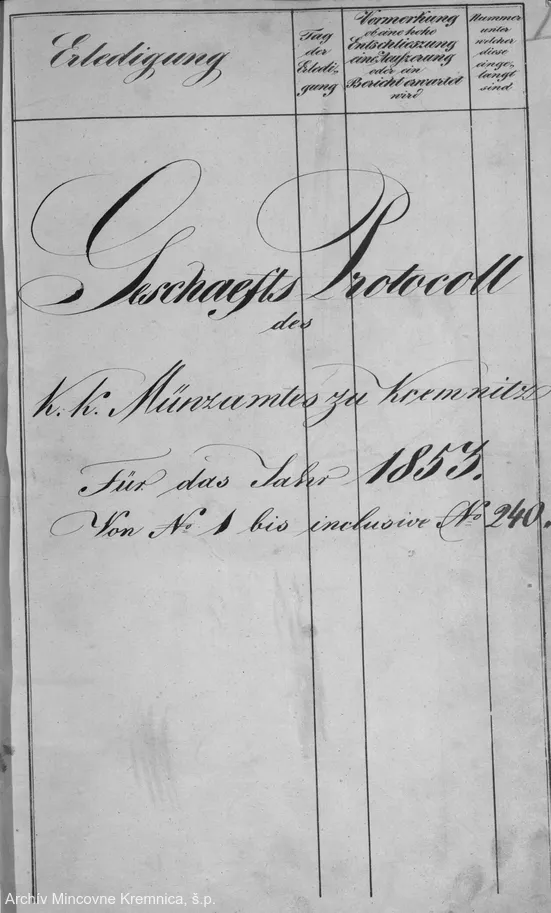 Erledigung
Tag
der
Erledi-
gung
Vormerkung
ob eine hohe
Entschliessung
eine Aüßerung
oder ein
Bericht erwartet
wird
Nummer
unter
welcher
diese
einge-
langt
sind
Geschaefts Protocoll
des
K. K. Münzamtes zu Kremnitz
Für das Jahr 1853.
Von No 1 bis inclusive No 240.
Archív Mincovne Kremnica, š.p.